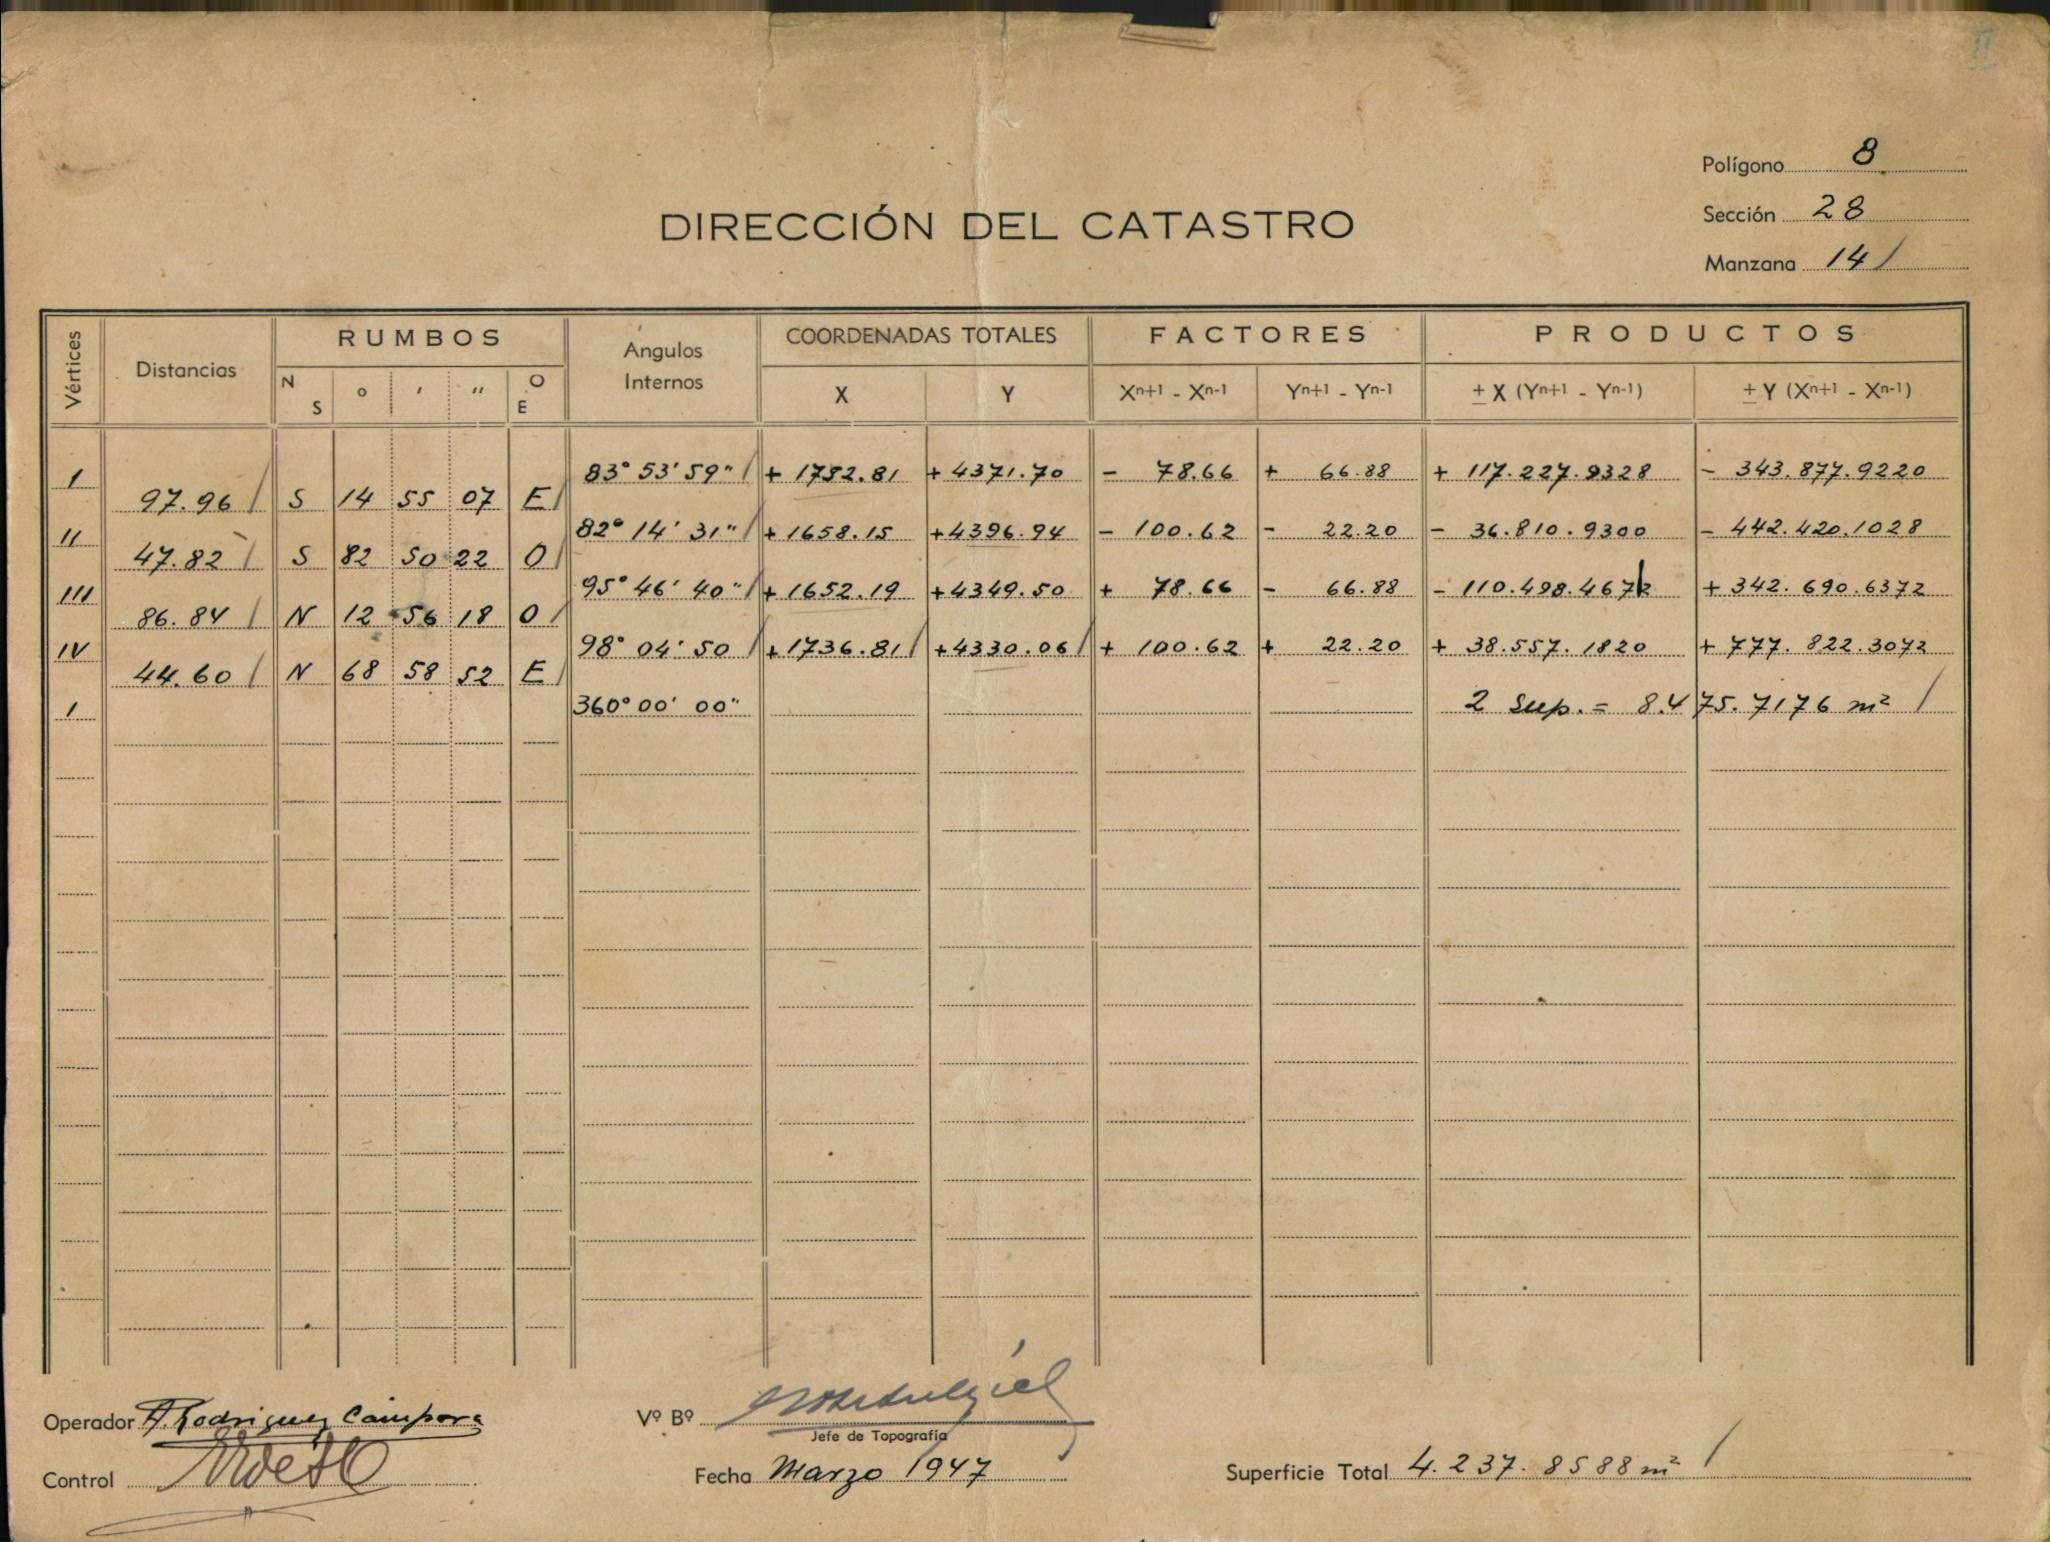 II
Polígono 8
Sección 28
Manzana 14 /
DIRECCIÓN DEL CATASTRO
Vértices Distancias RUMBOS Angulos Internos COORDENADAS TOTALES FACTORES PRODUCTOS
N S ° ' " O E X Y Xⁿ⁺¹ - Xⁿ⁻¹ Yⁿ⁺¹ - Yⁿ⁻¹ ± X (Yⁿ⁺¹ - Yⁿ⁻¹) ± Y (Xⁿ⁺¹ - Xⁿ⁻¹)
I 83° 53' 59" / + 1752.81 + 4371.70 - 78.66 + 66.88 + 117.227.9328 - 343.877.9220
97.96 / S 14 55 07 E /
II 82° 14' 31" / + 1658.15 + 4396.94 - 100.62 - 22.20 - 36.810.9300 - 442.420.1028
47.82 / S 82 50 22 O /
III 95° 46' 40" / + 1652.19 + 4349.50 + 78.66 - 66.88 - 110.498.4672 + 342.690.6372
86.84 / N 12 56 18 O /
IV 98° 04' 50 / + 1736.81 / + 4330.06 / + 100.62 + 22.20 + 38.557.1820 + 777.822.3072
44.60 / N 68 58 52 E /
I 360° 00' 00" 2 Sup. = 8.475.7176 m² /
Operador A. Rodriguez Cámpora
Vº Bº
Jefe de Topografía
Control
Fecha Marzo 1947
Superficie Total 4.237.8588 m² /